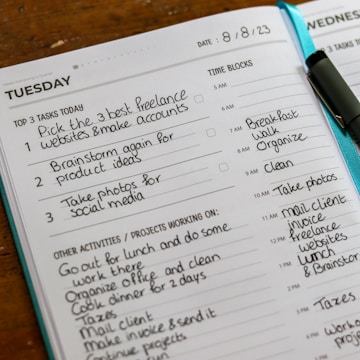 DATE: 8/8/23
WEDNES
TUESDAY
TOP 3 TASKS TODAY
1 Pick the 3 best freelance
websites & make accounts
2 Brainstorm again for
product ideas
3 Take photos for
social media
OTHER ACTIVITIES / PROJECTS WORKING ON:
Go out for lunch and do some
work there
Organize office and clean
Cook dinner for 2 days
Taxes
Mail client
Make invoice & send it
Continue projects
TIME BLOCKS
5 AM
6 AM
7 AM Breakfast
walk
8 AM Organize
9 AM clean
10 AM Take photos
11 AM mail client
invoice
12 PM freelance
websites
1 PM lunch
& Brainstor
2 PM
3 PM Taxes
Worko
projec